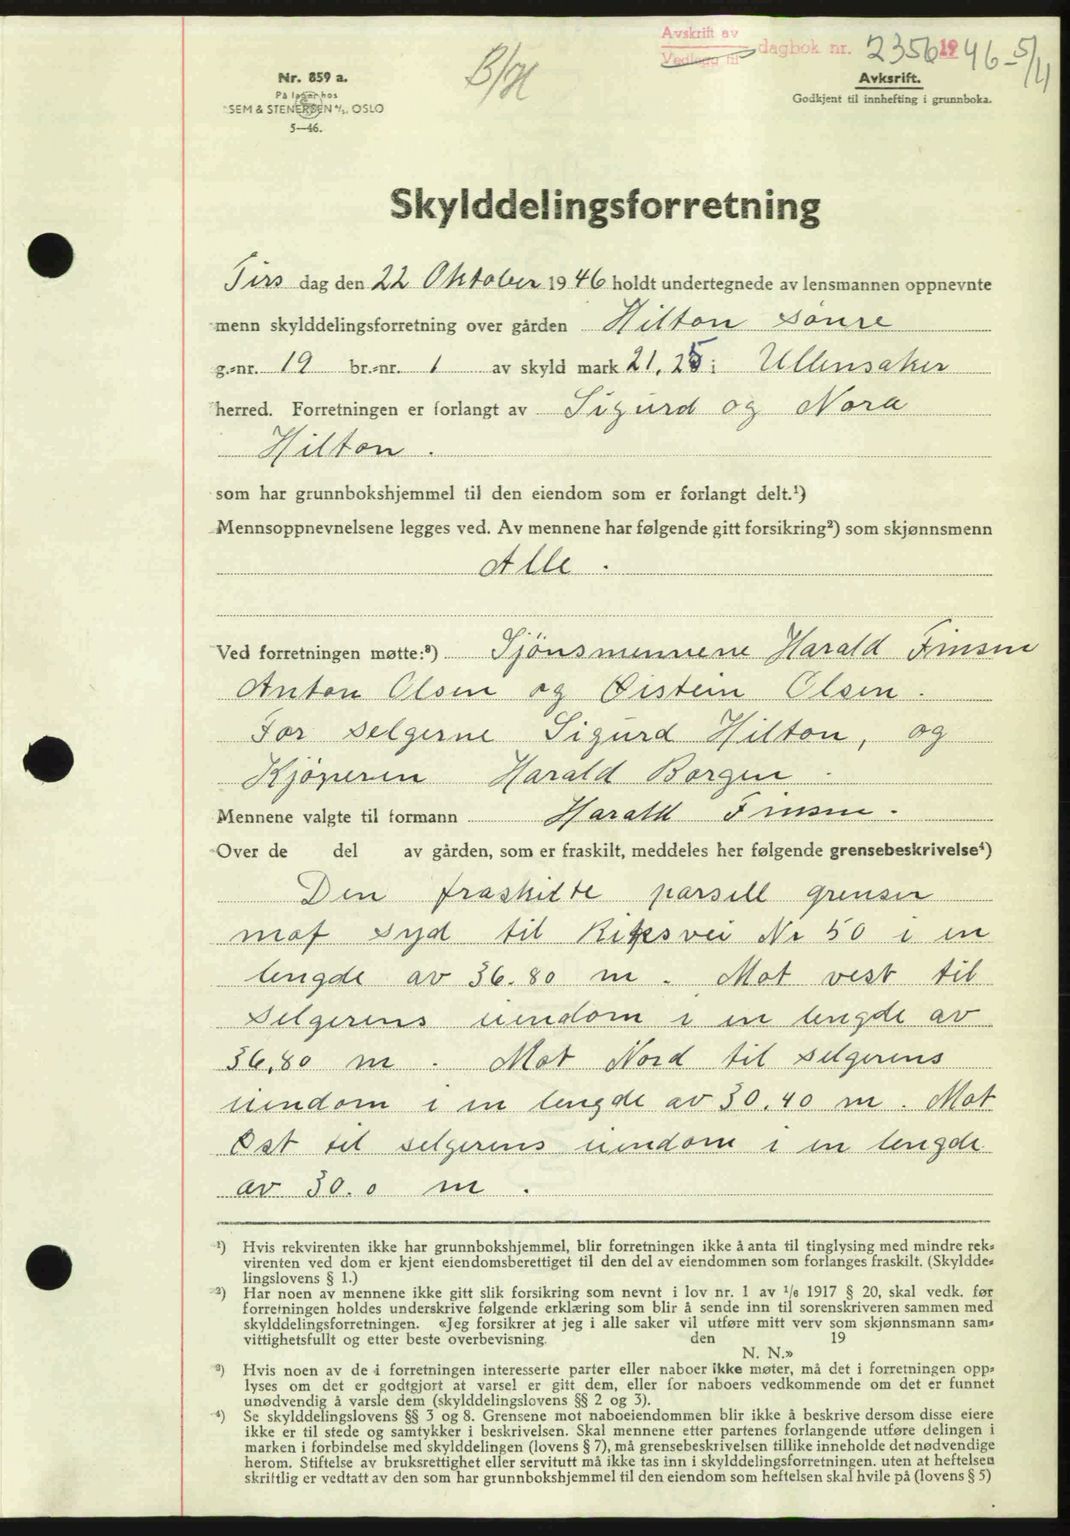 Avskrift av
Vedlegg til
dagbok nr. 2356 1946-5/11
B/H
Nr. 859 a.
På lager hos
SEM & STENERSEN A/S, OSLO
5—46.
Avksrift.
Godkjent til innhefting i grunnboka.
Skylddelingsforretning
Tirs dag den 22 Oktober 1946 holdt undertegnede av lensmannen oppnevnte
menn skylddelingsforretning over gården Hilton sønre
g.-nr. 19 br.-nr. 1 av skyld mark 21,25 i Ullensaker
herred. Forretningen er forlangt av Sigurd og Nora
Hilton.
som har grunnbokshjemmel til den eiendom som er forlangt delt.¹)
Mennsoppnevnelsene legges ved. Av mennene har følgende gitt forsikring²) som skjønnsmenn
Alle.
Ved forretningen møtte:³) Sjönsmennene Harald Finsen
Anton Olsen og Øistein Olsen.
For selgerne Sigurd Hilton, og
Kjöperen Harald Borgen.
Mennene valgte til formann Harald Finsen.
Over de del av gården, som er fraskilt, meddeles her følgende grensebeskrivelse⁴)
Den fraskilte parsell grenser
mot syd til Riksvei Nr 50 i en
lengde av 36.80 m. Mot vest til
selgerens eiendom i en lengde av
36,80 m. Mot Nord til selgerens
eiendom i en lengde av 30.40 m. Mot
Øst til selgerens eiendom i en lengde
av 30.0 m.
¹) Hvis rekvirenten ikke har grunnbokshjemmel, blir forretningen ikke å anta til tinglysing med mindre rek-
virenten ved dom er kjent eiendomsberettiget til den del av eiendommen som forlanges fraskilt. (Skyldde-
lingslovens § 1.)
²) Har noen av mennene ikke gitt slik forsikring som nevnt i lov nr. 1 av 1/6 1917 § 20, skal vedk. før
forretningen holdes underskrive følgende erklæring som blir å sende inn til sorenskriveren sammen med
skylddelingsforretningen. «Jeg forsikrer at jeg i alle saker vil utføre mitt verv som skjønnsmann sam-
vittighetsfullt og etter beste overbevisning. den 19
N. N.»
³) Hvis noen av de i forretningen interesserte parter eller naboer ikke møter, må det i forretningen opp-
lyses om det er godtgjort at varsel er gitt dem, eller for naboers vedkommende om det er funnet
unødvendig å varsle dem (skylddelingslovens §§ 2 og 3).
⁴) Se skylddelingslovens §§ 3 og 8. Grensene mot naboeiendommen blir ikke å beskrive dersom disse eiere
ikke er til stede og samtykker i beskrivelsen. Skal mennene etter partenes forlangende utføre delingen i
marken i forbindelse med skylddelingen (lovens § 7), må grensebeskrivelsen tillike inneholde det nødvendige
herom. Stiftelse av bruksrettighet eller servitutt må ikke tas inn i skylddelingsforretningen. uten at heftelsen
skriftlig er vedtatt av den som har grunnbokshjemmel til den eiendom som heftelsen skal hvile på (lovens § 5)